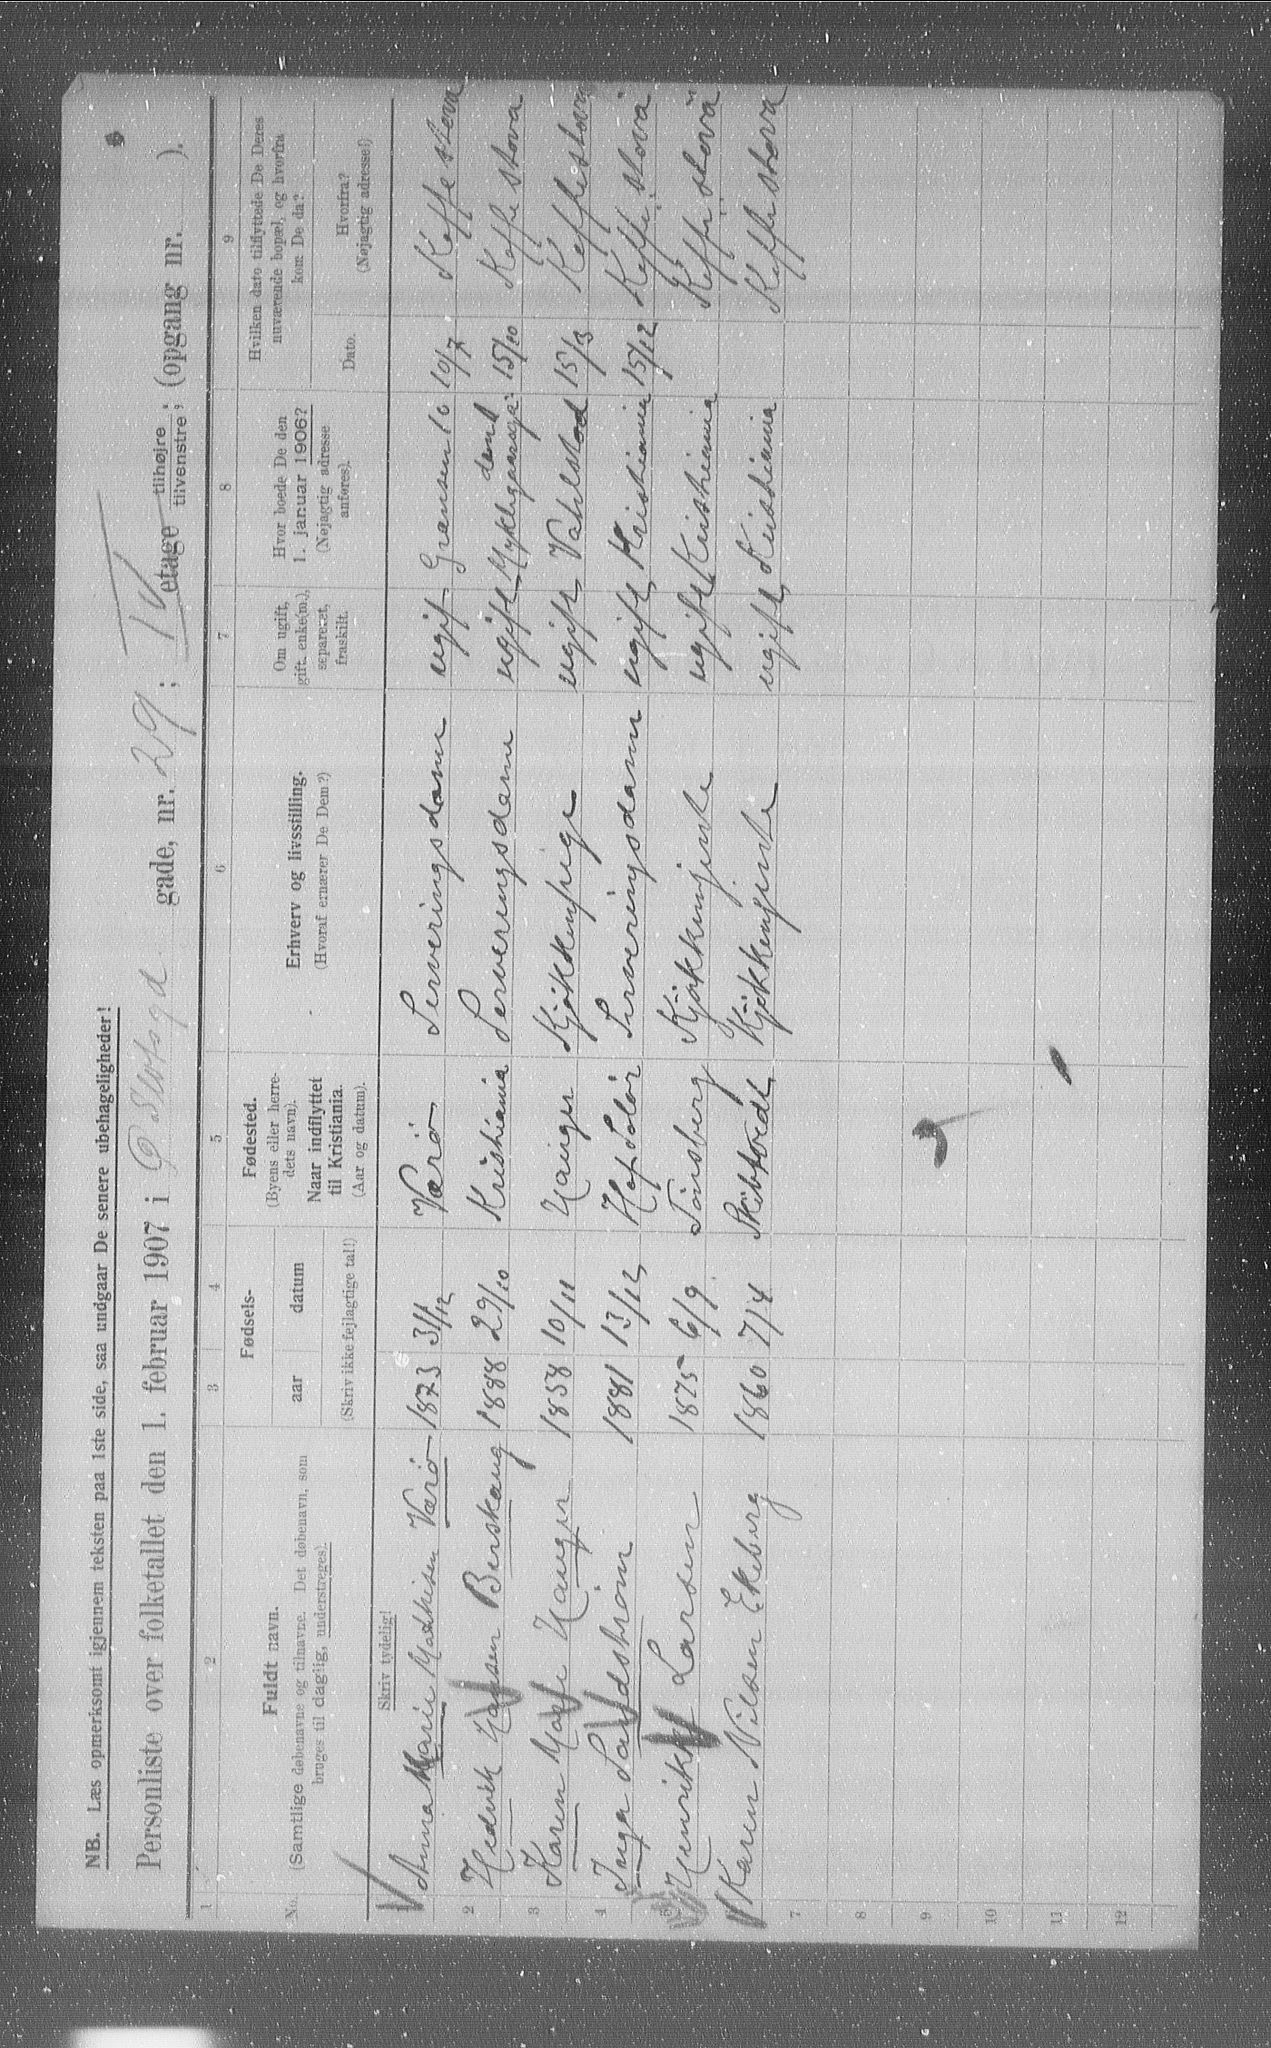 NB. Læs opmerksomt igjennem teksten paa 1ste side, saa undgaar De senere ubehageligheder!
Personliste over folketallet den 1. februar 1907 i Ø. Slotsgd. gade, nr. 29; IV etage tilhøjre tilvenstre; (opgang nr. ).
1 2 3 4 5 6 7 8 9
No.
Fuldt navn.
(Samtlige døbenavne og tilnavne. Det døbenavn, som bruges til daglig, understreges).
Skriv tydelig!
Fødsels-
aar datum
(Skriv ikke fejlagtige tal!)
Fødested.
(Byens eller herredets navn).
Naar indflyttet til Kristiania.
(Aar og datum).
Erhverv og livsstilling.
(Hvoraf ernærer De Dem?)
Om ugift, gift, enke(m.), separeret, fraskilt.
Hvor boede De den 1. januar 1906?
(Nøjagtig adresse anføres).
Hvilken dato tilflyttede De Deres nuværende bopæl, og hvorfra kom De da?
Dato. Hvorfra?
(Nøjagtig adresse!)
Anna Marie Mathisen Værö 1873 31/12 Værö Serveringsdame ugift Grænsen 10/7 Kaffestova
2 Hedvik Hansen Berskaug 1888 29/10 Kristiania Serveringsdame ugift 15/10 Kaffestova
3 Karen Marie Hauger 1858 10/11 Hauger Kjökkenpige ugift Kaffestova
4 Inga Sandström 1881 13/12 Hof Solör Serveringsdame ugift Kristiania 15/12 Kaffestova
5 Henrikke Larsen 1875 6/9 Tönsberg Kjökkenjente ugift Kristiania Kaffestova
Karen Nilsen Ekeberg 1860 7/4 Kjökkenjente ugift Kristiania Kaffestova
7
8
9
10
11
12